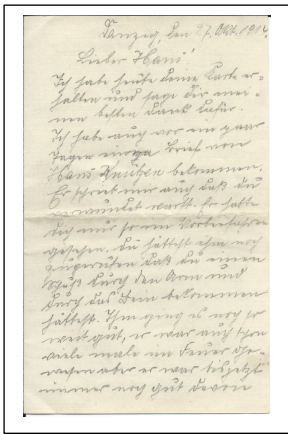 Danzig, den 27. Okt. 1914.
Lieber Hans!
Ich habe heute deine Karte er-
halten und sage dir mei-
nen besten Dank dafür.
Ich habe auch vor ein paar
Tagen einen Brief von
Hans bekommen.
Er schrieb mir auch daß du
verwundet warst. Er hatte
dich nur so im Vorbeifahren
gesehen. Du hättest ihm noch
zugerufen daß du einen
Schuß durch den Arm und
durch das Bein bekommen
hättest. Ihm ging es noch so
weit gut, er war auch schon
viele male im Feuer ge-
wesen aber er war bis jetzt
immer noch gut davon